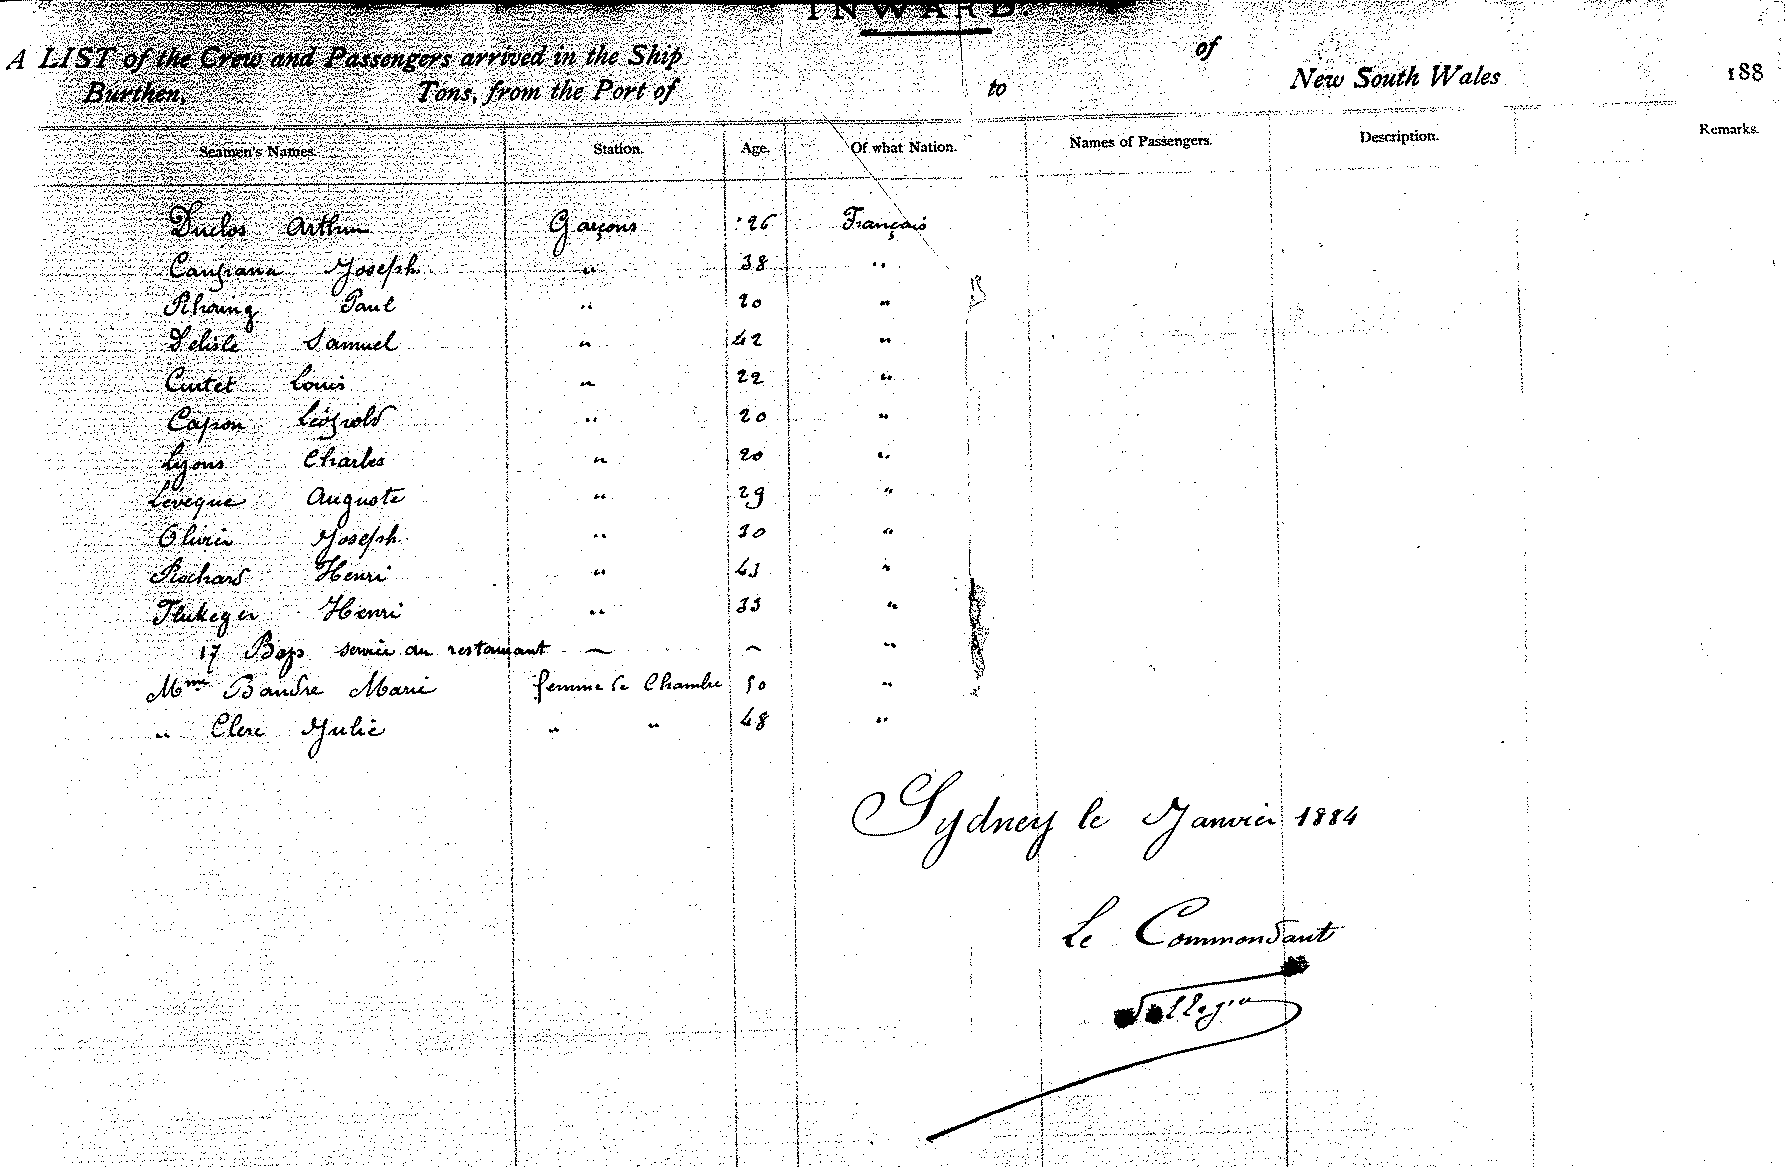 INWARD
A LIST of the Crew and Passengers arrived in the Ship of
Burthen, Tons, from the Port of to New South Wales 188
Seamen's Names. Station. Age. Of what Nation. Names of Passengers. Description. Remarks.
Duclos Arthur Garçons 26 Français
Joseph " 38 "
Paul " 20 "
Delisle Samuel " 42 "
Curtet Louis " 22 "
Capon Léopold " 20 "
Lyons Charles " 20 "
Leveque Auguste " 29 "
Olivier Joseph " 30 "
Rochard Henri " 43 "
Flukeger Henri " 33 "
17 Boys service du restaurant — — "
Mme Baudre Marie femme de Chambre 50 "
" Clerc Julie " " 48 "
Sydney le Janvier 1884
Le Commandant